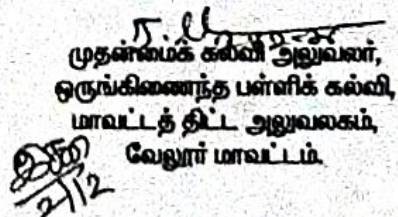 முதன்மைக் கல்வி அலுவலர்,
ஒருங்கிணைந்த பள்ளிக் கல்வி,
மாவட்டத் திட்ட அலுவலகம்,
வேலூர் மாவட்டம்.
2/12